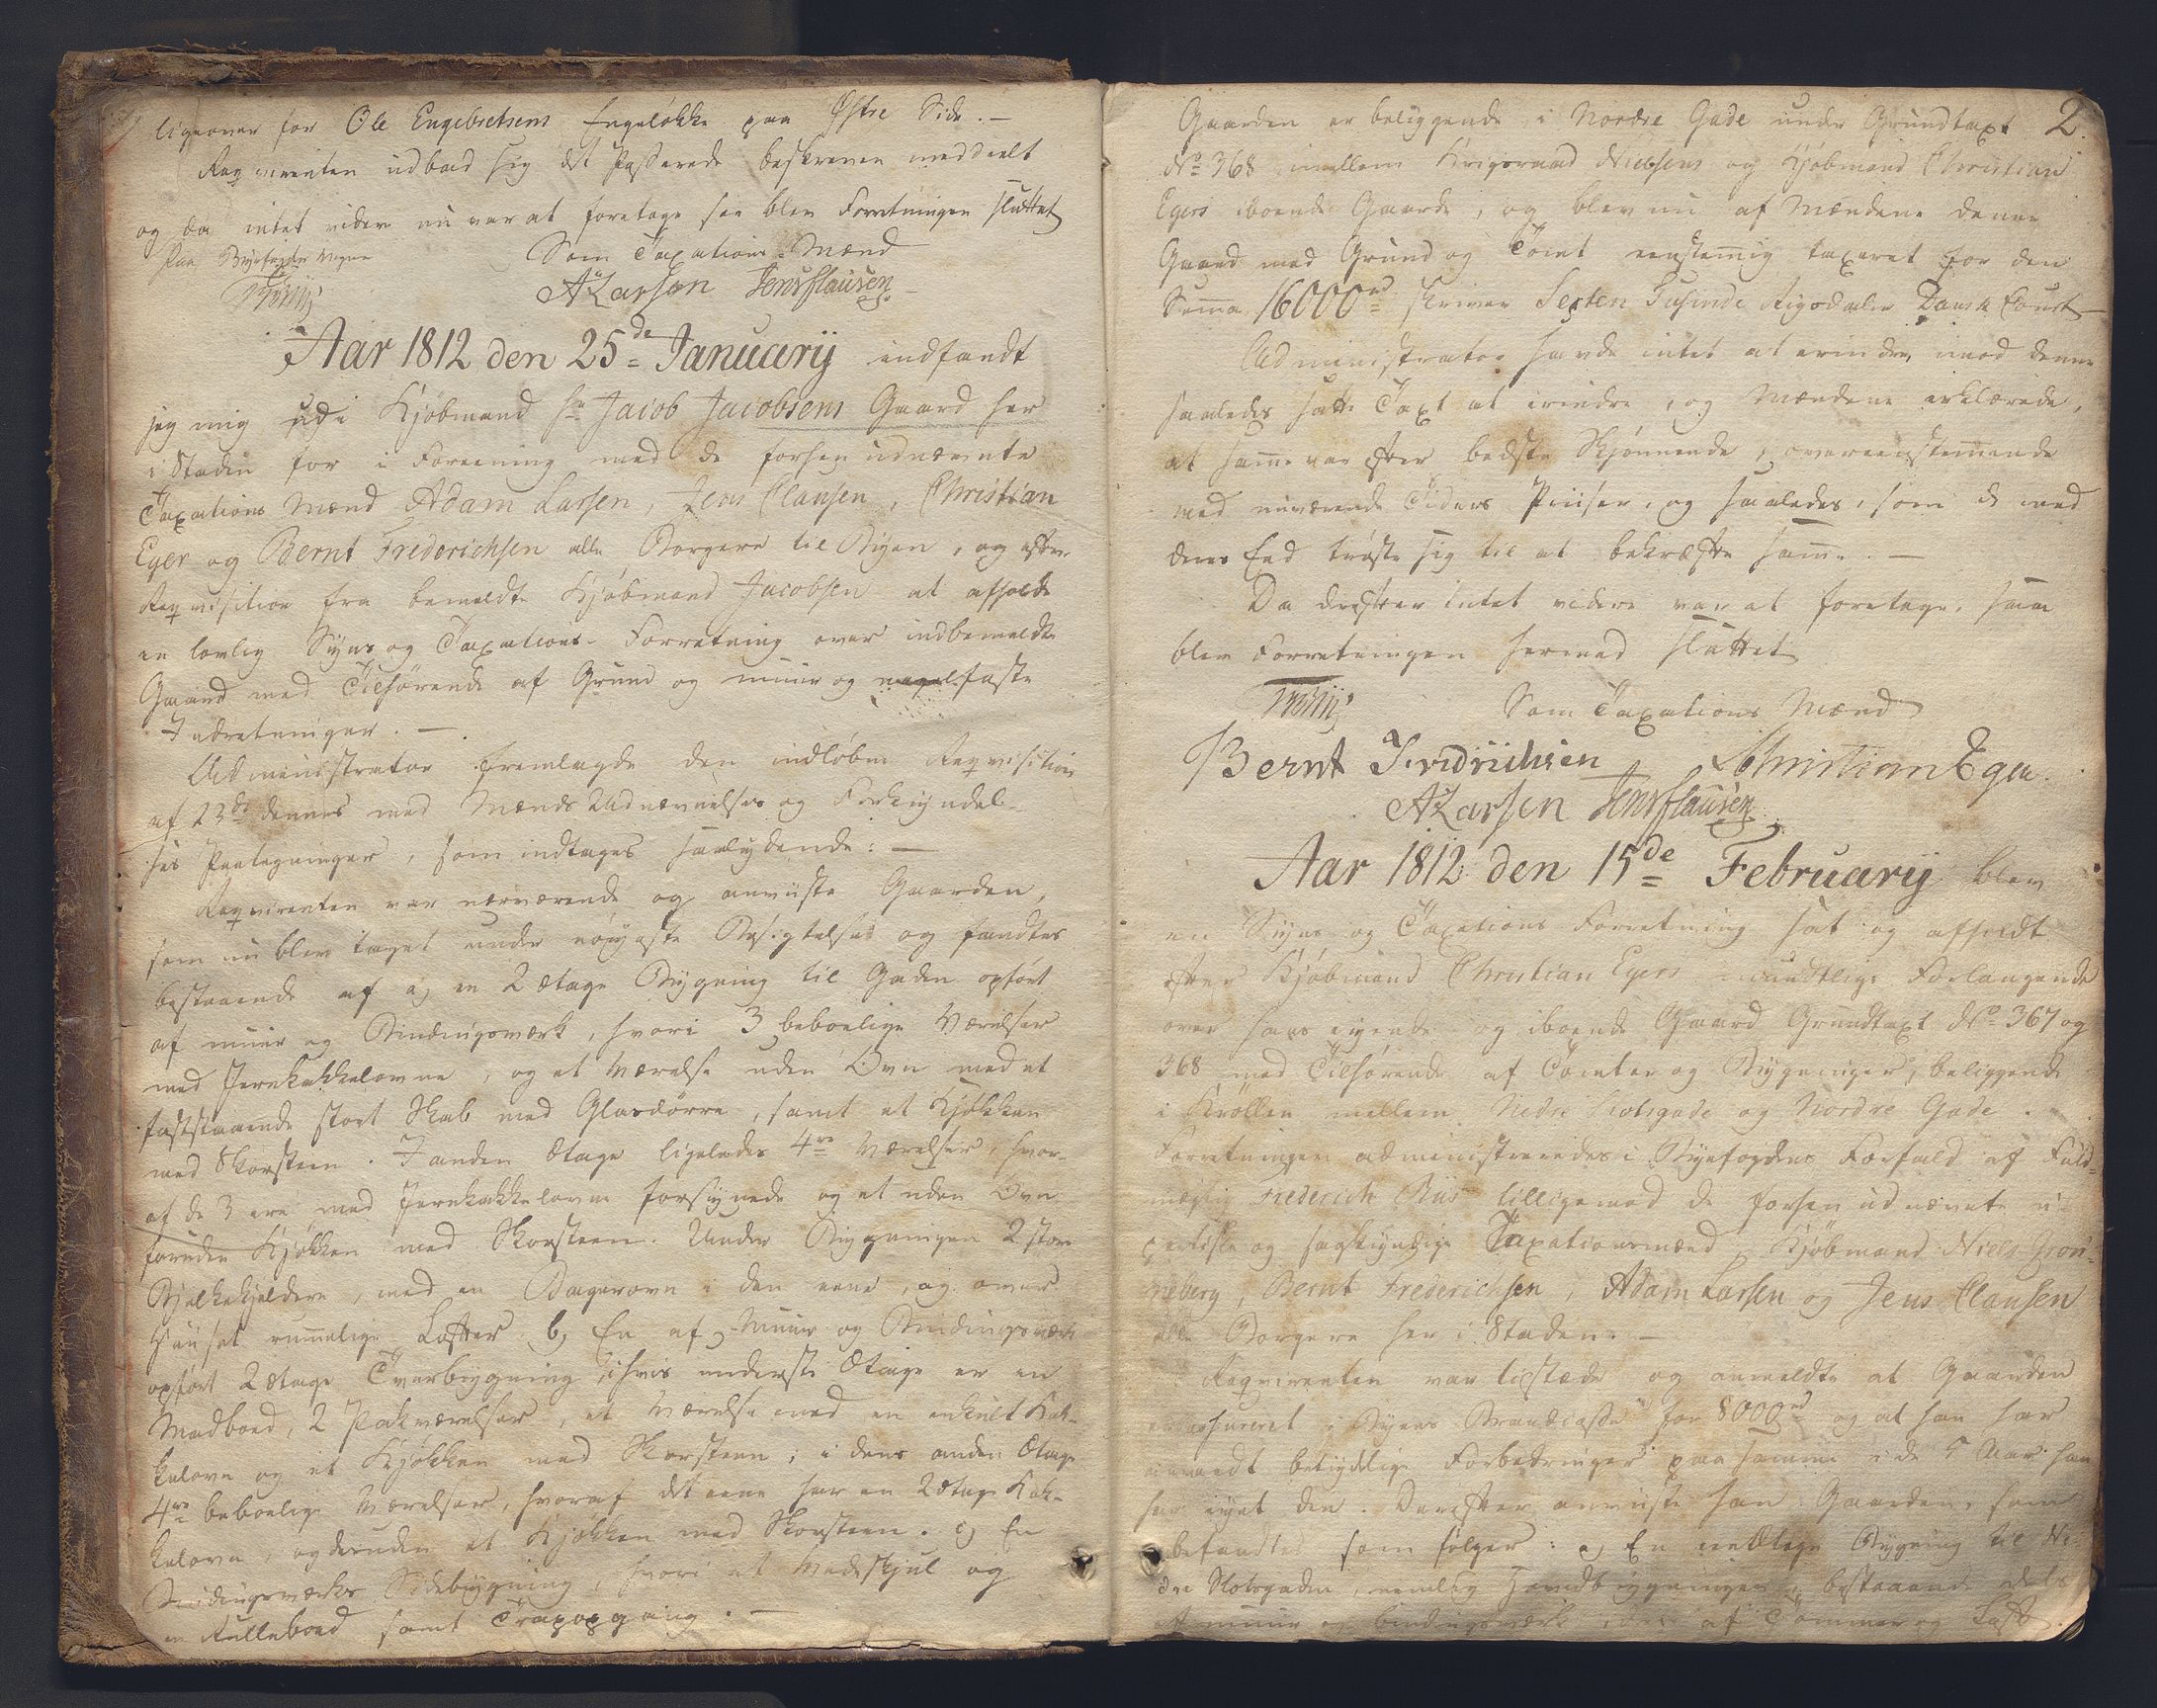 ligeover for Ole Engebretsens Engeløkke paa Østre Side. —
Reqvirenten udbad sig det Passerede beskreven meddeelt
og da intet videre nu var at foretage saa blev Forretningen sluttet
Paa Byefogdens Vegne Som Taxations-Mænd
ALarsen Jens Clausen
Aar 1812 den 25de Januarij indfandt
jeg mig udi Kjøbmand Hr Jacob Jacobsens Gaard her
i Staden for i Foreening med de forhen udnævnte
Taxations Mænd Adam Larsen, Jens Clausen, Christian
Eger og Bernt Frederichsen alle Borgere til Byen, og efter
Reqvisition fra bemeldte Kjøbmand Jacobsen at afholde
en lovlig Syns og Taxations-Forretning over indbemeldte
Gaard med Tilhørende af Grund og muur og nagelfaste
Indretninger. —
Administrator fremlagde den indløbne Reqvisition
af 23de dennes med Mænds Udnævnelses og Forkyndel-
ses Paategninger, som indtages saalydende: —
Reqvirenten var nærværende og anviiste Gaarden,
som nu blev taget under nøyeste Besigtelse og fandtes
bestaaende af a) en 2 Etage Bygning til Gaden opført
af muur og Bindingsværk, hvori 3 beboelige Værelser
med Jernkakkelovne, og et Værelse uden Ovn med et
faststaaende stort Skab med Glasdørre, samt et Kjøkken
med Skorsteen. I anden Etage ligeledes 4re Værelser, hvor-
af de 3 ere med Jernkakkelovne forsynede og et uden Ovn
foruden Kjøkken med Skorsteen. Under Bygningen 2 store
Bjelkekjeldere, med en Bagerovn i den eene, og over
Huuset rummelige Lofter b) En af Muur og Bindingsværk
opført 2 Etage Tverbygning, i hvis underste Etage er en
Madboed, 2 Pakværelser, et Værelse med en enkelt Kak-
kelovn og et Kjøkken med Skorsteen; i dens anden Etage
4re beboelige Værelser, hvoraf det eene har en 2 Etage Kak-
kelovn, og desuden et Kjøkken med Skorsteen. c) En
Bindingsværks Sidebygning, hvori et Vedeskjul og
en Rulleboed samt Trapopgang. —
2.
Gaarden er beliggende i Nordre Gade under Grundtaxt
No 368 imellem Krigsraad Nielsens og Kjøbmand Christian
Egers iboende Gaarde, og blev nu af Mændene denne
Gaard med Grund og Tomt eenstemmig taxeret for den
Summa 16000 rd skriver Sexten Tusinde Rigsdaler Dansk Court —
Administrator havde intet at erindre imod denne
saaledes satte Taxt at erindre, og Mændene erklærede,
at samme var efter bedste Skjønnende, overeensstemmende
med nuværende Tiders Priiser, og saaledes, som de med
deres Eed trøste sig til at bekræfte samme. —
Da derefter intet videre var at foretage, saa
blev Forretningen hermed sluttet
Som Taxations Mænd
Bernt Fridrichsen Christian Eger
ALarsen Jens Clausen
Aar 1812 den 15de Februarij blev
en Syns og Taxations Forretning sat og afholdt
efter Kjøbmand Christian Egers mundtlige Forlangende
over hans eyende og iboende Gaard Grundtaxt No 367 og
368 med Tilhørende af Tomter og Bygninger, beliggende
i Krøllen mellem Nedre Slotsgade og Nordre Gade.
Forretningen administreredes i Byefogdens Forfald af Fuld-
mægtig Frederich Riis tilligemed de forhen udnævnte u-
partiske og sagkyndige Taxationsmænd, Kjøbmand Niels Gron-
neberg, Bernt Frederichsen, Adam Larsen og Jens Clausen
alle Borgere her i Staden. —
Reqvirenten var tilstæde og anmeldte at Gaarden
er assureret i Byens Brandcasse for 8000 rd og at han har
anvendt betydelige Forbedringer paa samme i de 5 Aar han
har eyet den. Derefter anviiste han Gaarden, som
befandtes som følger: a) En eenEtage Bygning til Ne-
dre Slotsgaden, nemlig Hovedbygningen, bestaaende deels
af muur og bindingsværk, deels af Tømmer og Loft